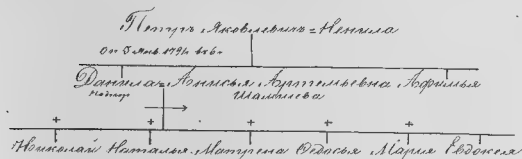 Петръ Яковлевичъ = Ненила
Данила = Анисья Артемьевна Афимья
Шамшева
Николай Наталья Матрена Федосья Мария Евдокея